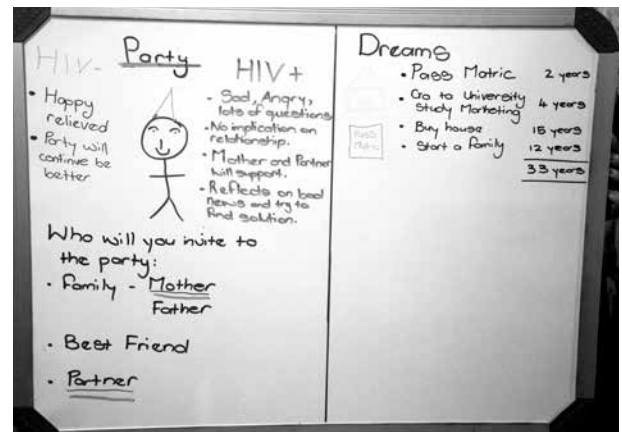 HIV-
Party
HIV+
• Happy
relieved
• Party will
continue be
better
• Sad, Angry,
lots of questions
• No implication on
relationship.
• Mother and Partner
will support.
• Reflects on bad
news and try to
find solution.
Who will you invite to
the party:
• Family - Mother
Father
• Best Friend
• Partner
Dreams
• Pass Matric 2 years
• Go to University
Study Marketing 4 years
• Buy house 15 years
• Start a family 12 years
33 years
Pass
Matric